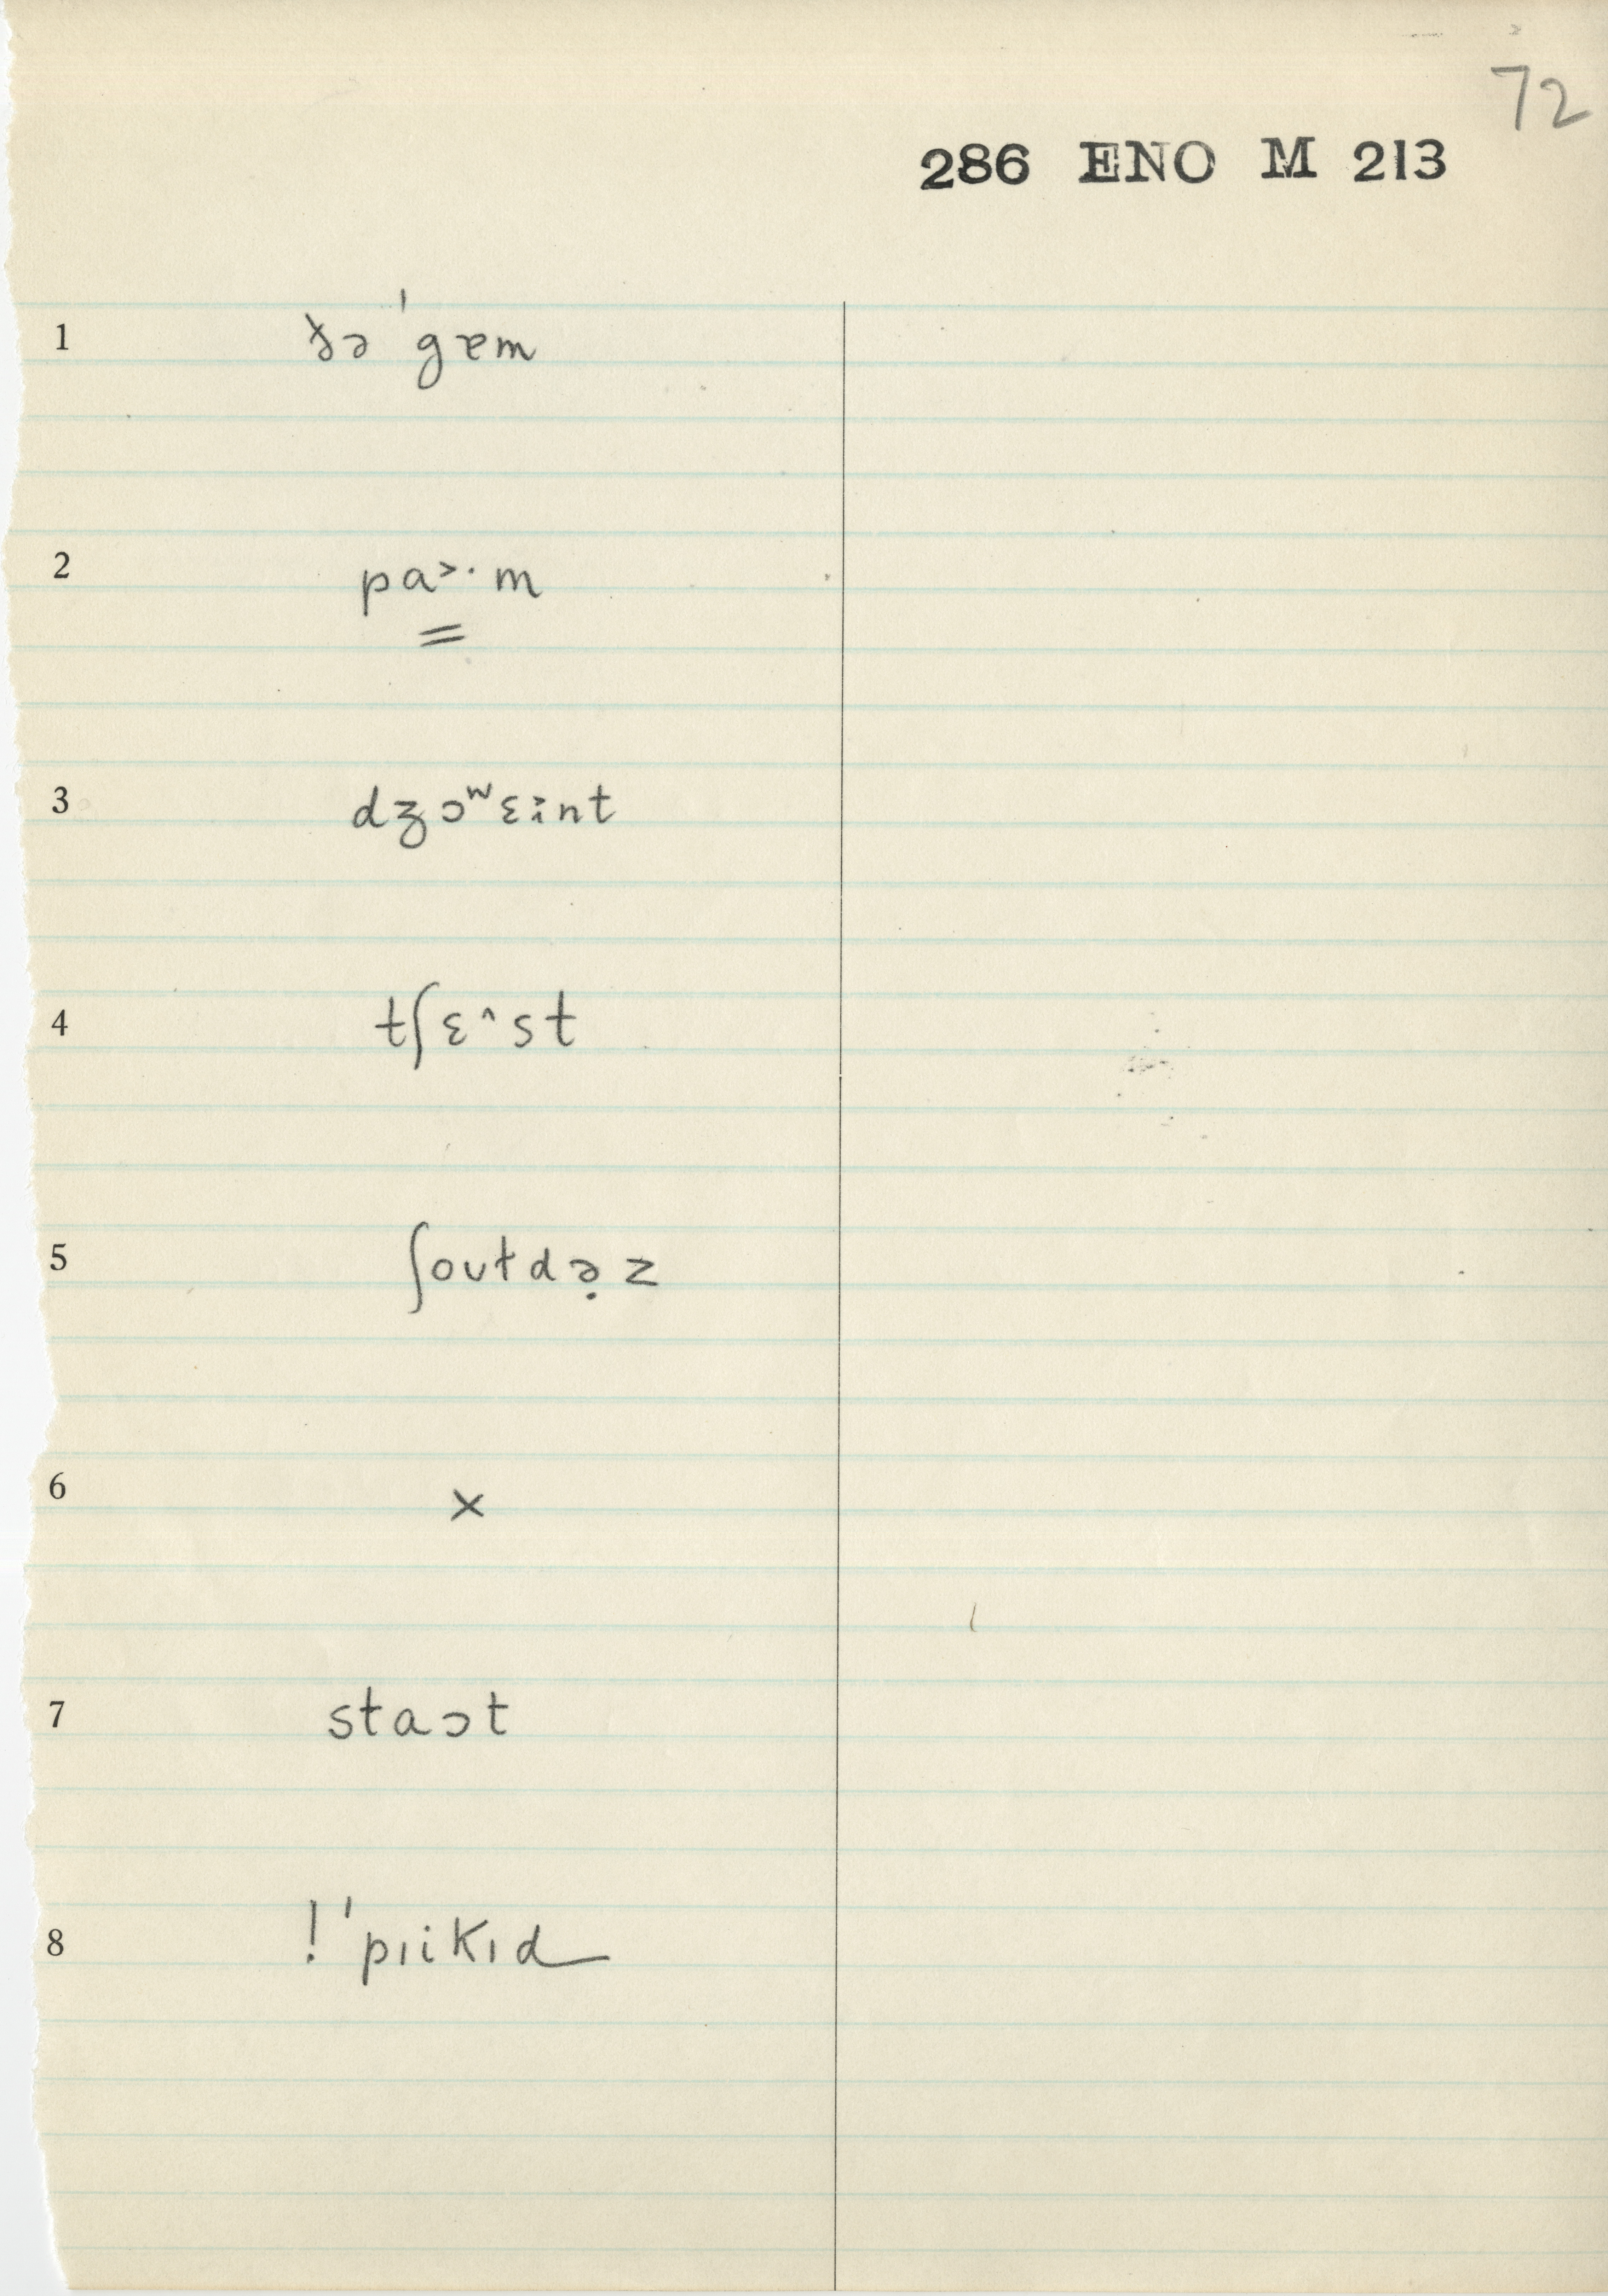 72
286 ENO M 213
1 ɮə ˈgɐm
2 pa˃· m
3 dʒɔʷɛint
4 tʃɛ^st
5 ʃoʊtdə̣z
6 x
7 staɔt
8 ! ˈpıikıd